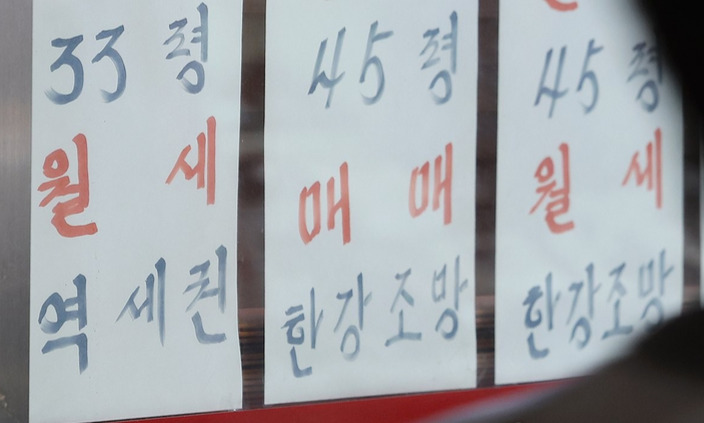 33 령
월 세
역 세권
45 령
매 매
한강 조망
45 령
월 세
한강조망